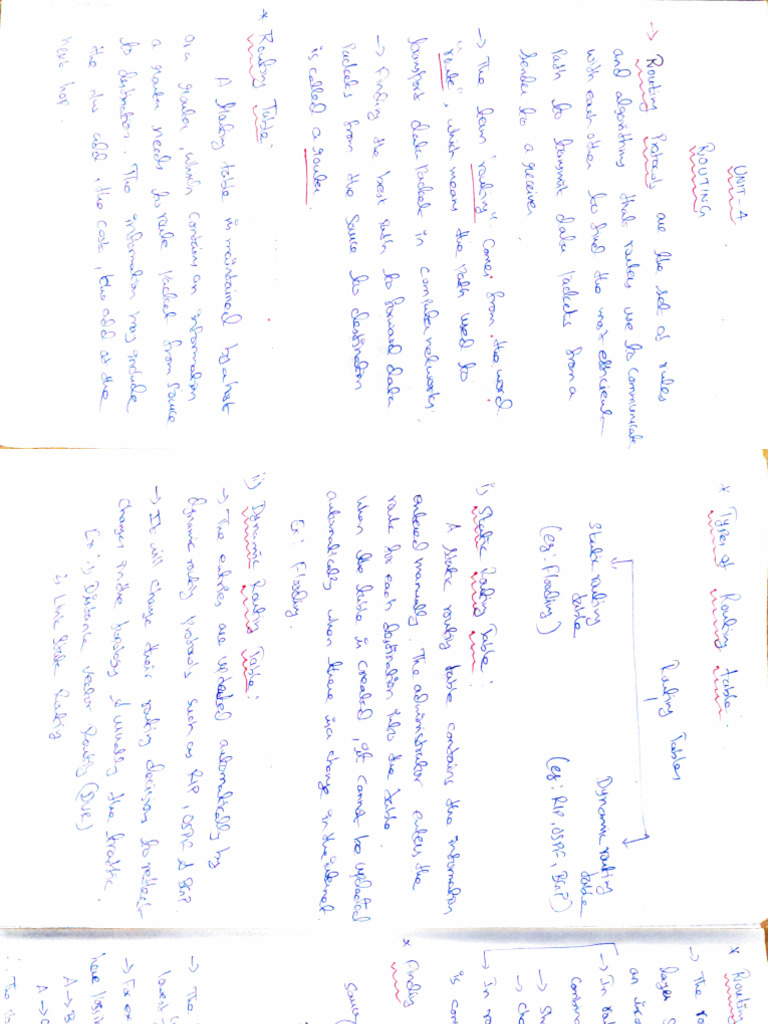 UNIT-4
ROUTING
-> Routing Protocols are the set of rules
and algorithms that routers use to communicate
with each other to find the most efficient
Path to transmit data packets from a
sender to a receiver
-> The term "routing" comes from the word
"route", which means the path used to
transport data packet in computer networks.
-> Finding the best path to forward data
Packets from the source to destination
is called a router.
* Routing Table:
A Routing table is maintained by a host
or a router, which contains an information
a router needs to route packet from source
to destination. The information may include
the n/w add, the cost, the add of the
next hop.
* Types of Routing table:
Routing Tables
Static routing
table
(eg: Flooding)
Dynamic routing
table
(eg: RIP, OSPF, BGP)
i) Static Routing Table:
A static routing table contains the information
entered manually. The administrator enters the
route for each destination into the table.
When the table is created, it cannot be updated
automatically when there is a change in the internet.
Ex: Flooding.
ii) Dynamic Routing Table:
-> The entries are updated automatically by
dynamic routing protocols such as RIP, OSPF & BGP.
-> It will change their routing decisions to reflect
changes in the topology & usually the traffic.
Ex: i) Distance Vector Routing (DVR)
ii) Link State Routing
* Routing
-> The
layer
an
-> In
combin
-> Sh
-> Ch
-> In
is con
* Finding
-> The
lowest
-> For ex
have
A -> B
A -> C